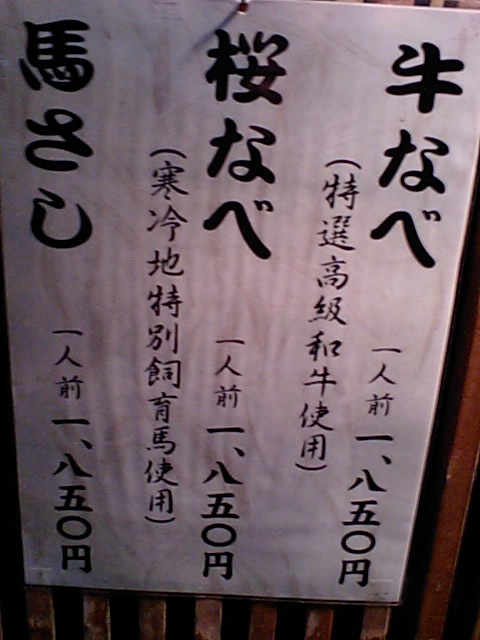 牛なべ
(特選高級和牛使用)
一人前 一、八五〇円
桜なべ
(寒冷地特別飼育馬使用)
一人前 一、八五〇円
馬さし
一人前 一、八五〇円